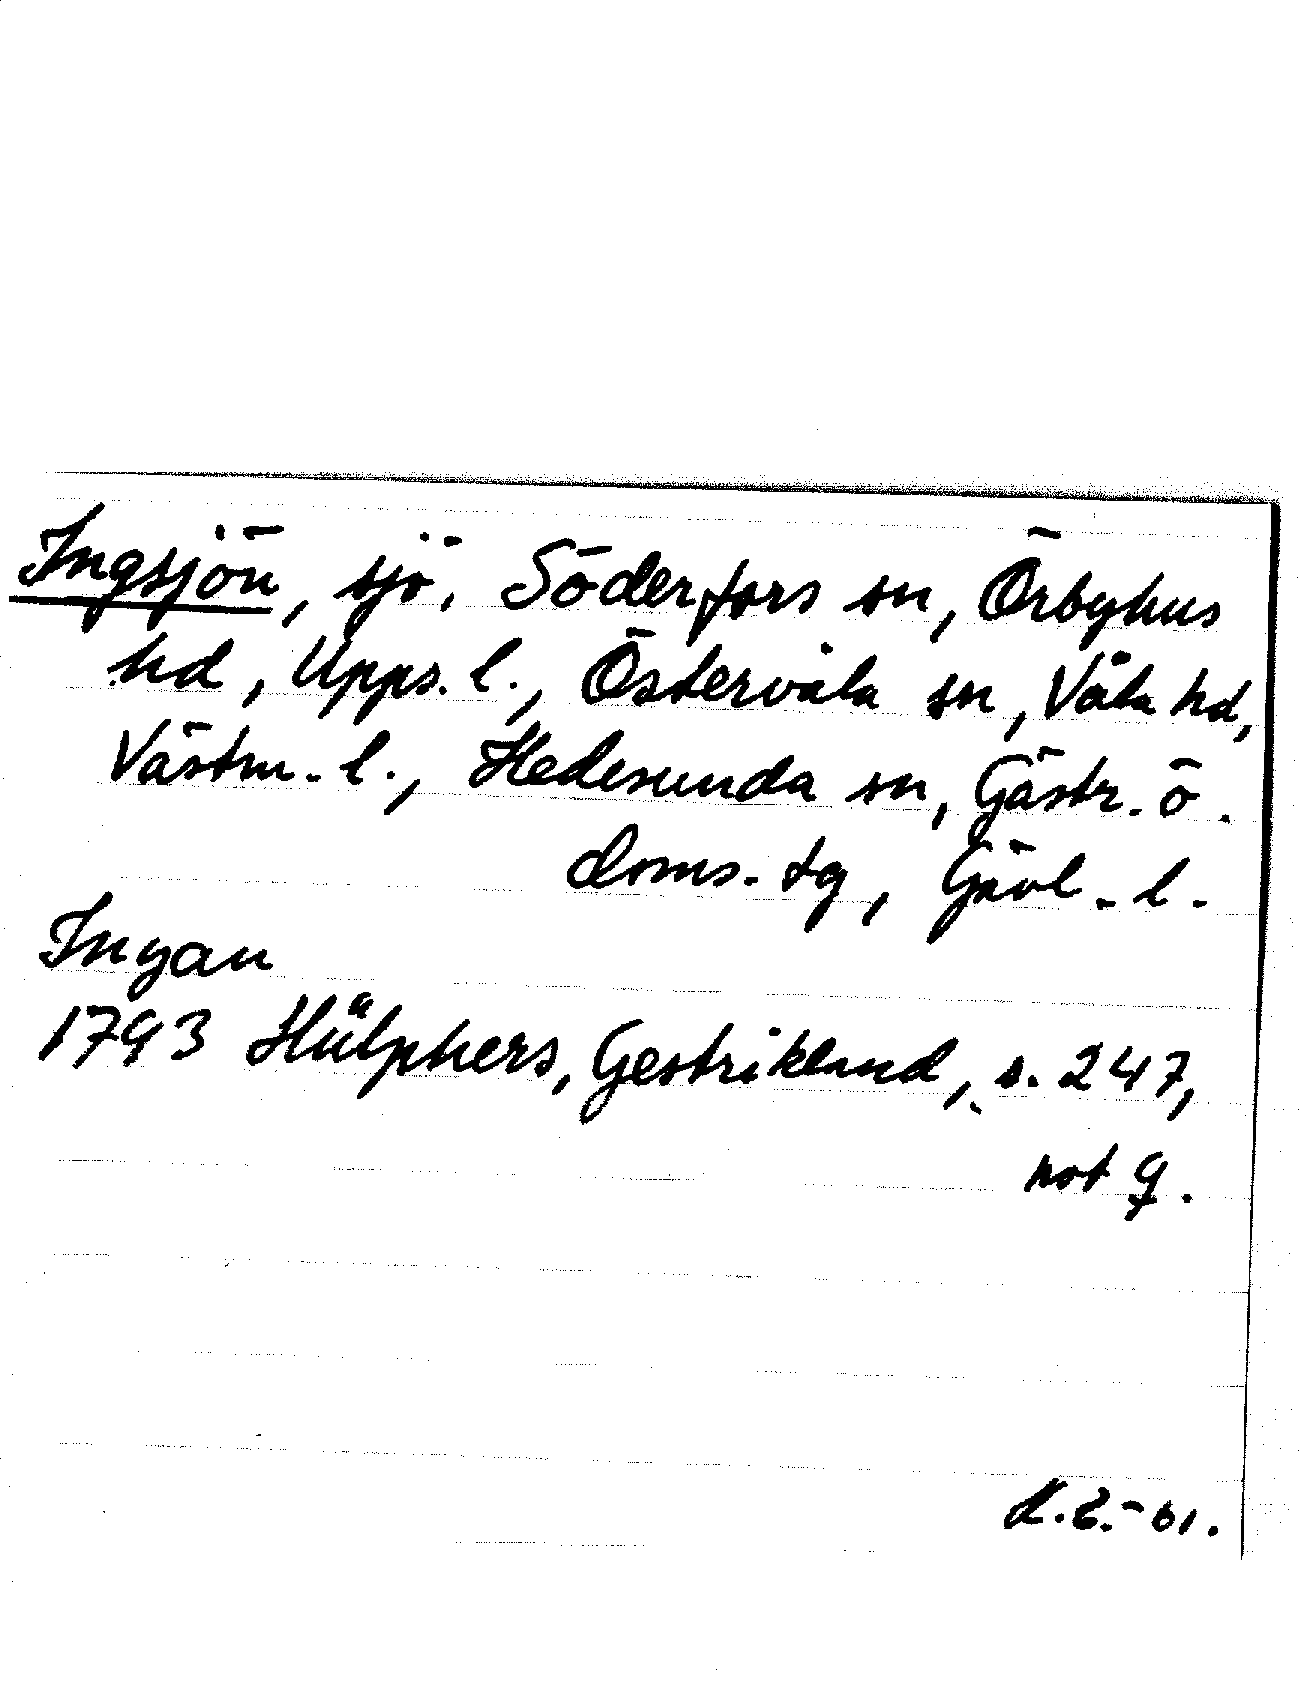 Ingsjön, sjö, Söderfors sn, Örbyhus
hd, Upps. l., Östervåla sn, Våla hd,
Västm. l., Hedesunda sn, Gästr. ö.
doms. tg, Gävl. l.
Ingan
1793 Hülphers, Gestrikland, s. 247,
not q.